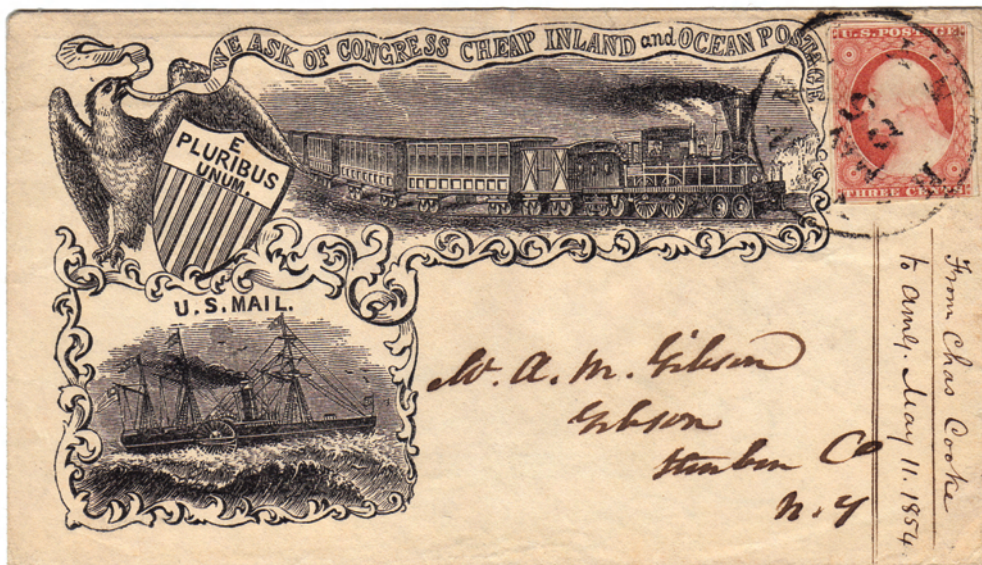 WE ASK OF CONGRESS CHEAP INLAND and OCEAN POSTAGE
U.S. POSTAGE
THREE CENTS
E
PLURIBUS
UNUM.
U.S. MAIL.
A. M. Gibson
Gibson
Steuben Co
N. Y
From Chas Cooke
to May 11. 1854.